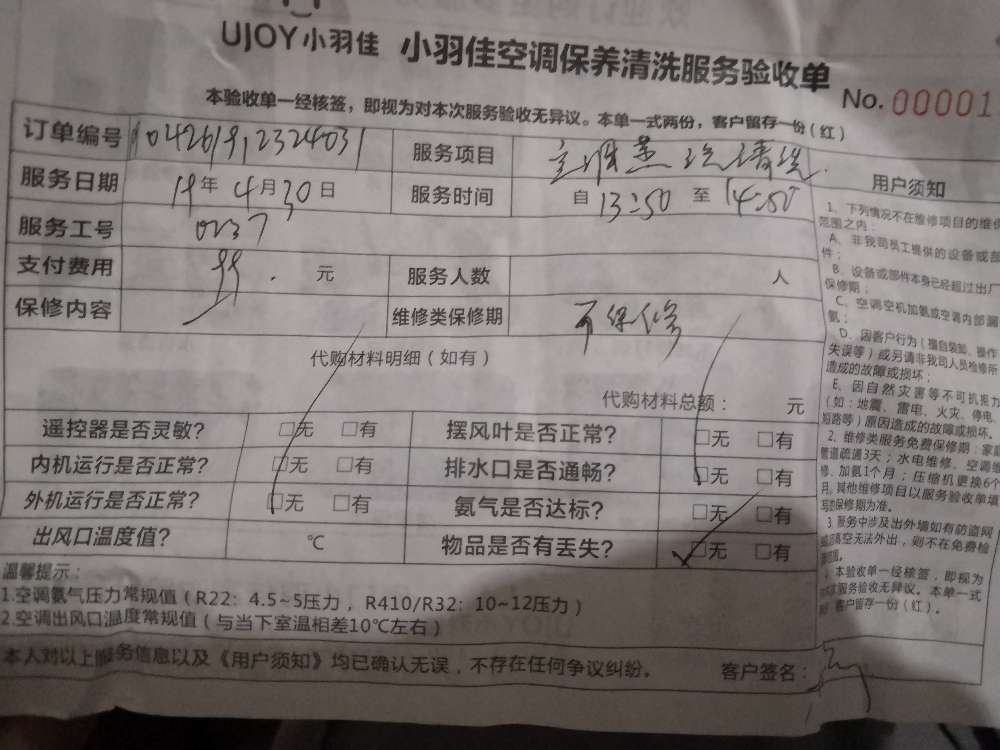 UJOY小羽佳 小羽佳空调保养清洗服务验收单
No. 00001
本验收单一经核签，即视为对本次服务验收无异议。本单一式两份，客户留存一份（红）
订单编号 服务项目 清洗
服务日期 19年4月30日 服务时间 自13:50至14:50
服务工号 0237
支付费用 99. 元 服务人数 人
保修内容 维修类保修期 不保修
代购材料明细（如有）
代购材料总额： 元
遥控器是否灵敏? □无 □有 摆风叶是否正常? □无 □有
内机运行是否正常? □无 □有 排水口是否通畅? □无 □有
外机运行是否正常? □无 □有 氨气是否达标? □无 □有
出风口温度值? ℃ 物品是否有丢失? □无 □有
温馨提示：
1.空调氨气压力常规值（R22：4.5~5压力，R410/R32：10~12压力）
2.空调出风口温度常规值（与当下室温相差10℃左右）
本人对以上服务信息以及《用户须知》均已确认无误，不存在任何争议纠纷。 客户签名：
用户须知
1、下列情况不在维修项目的维保
范围之内：
A、非我司员工提供的设备或部
件；
B、设备或部件本身已经超过出厂
保修期；
C、空调空机加氨或空调内部漏
氨；
D、因客户行为（擅自装卸、操作
失误等）或另请非我司人员检修所
造成的故障或损坏；
E、因自然灾害等不可抗拒力
（如：地震、雷电、火灾、停电、
短路等）原因造成的故障或损坏。
2、维修类服务免费保修期：家庭
管道疏通3天；水电维修、空调维
修、加氨1个月；压缩机更换6个
月,其他维修项目以服务验收单填
写的保修期为准。
3、服务中涉及出外墙如有防盗网
或高空无法外出，则不在免费检
本验收单一经核签，即视为
服务验收无异议。本单一式
客户留存一份（红）。